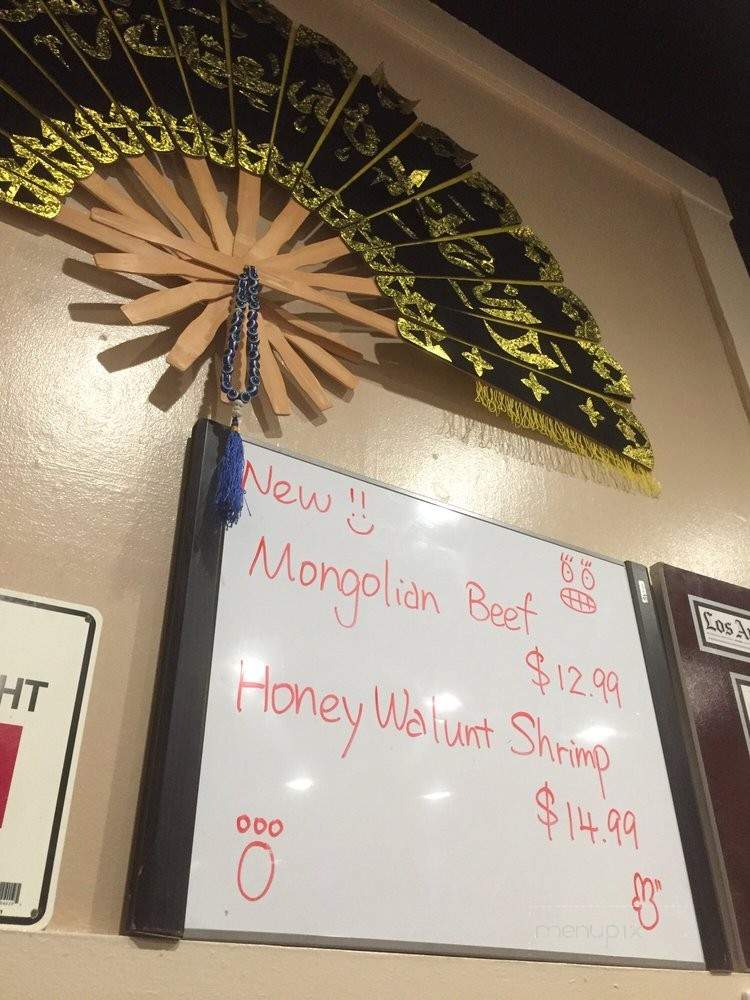 New !!
Mongolian Beef
$12.99
Honey Walunt Shrimp
$14.99
HT
Los A
menupix